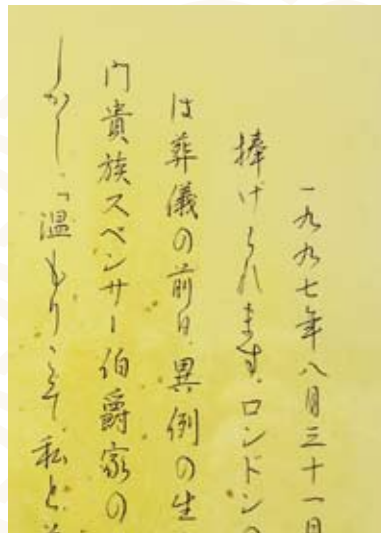 一九九七年八月三十一日
捧げられます。ロンドンの
は葬儀の前日、異例の生
門貴族スペンサー伯爵家の
しかし、「温もりこそ、私と